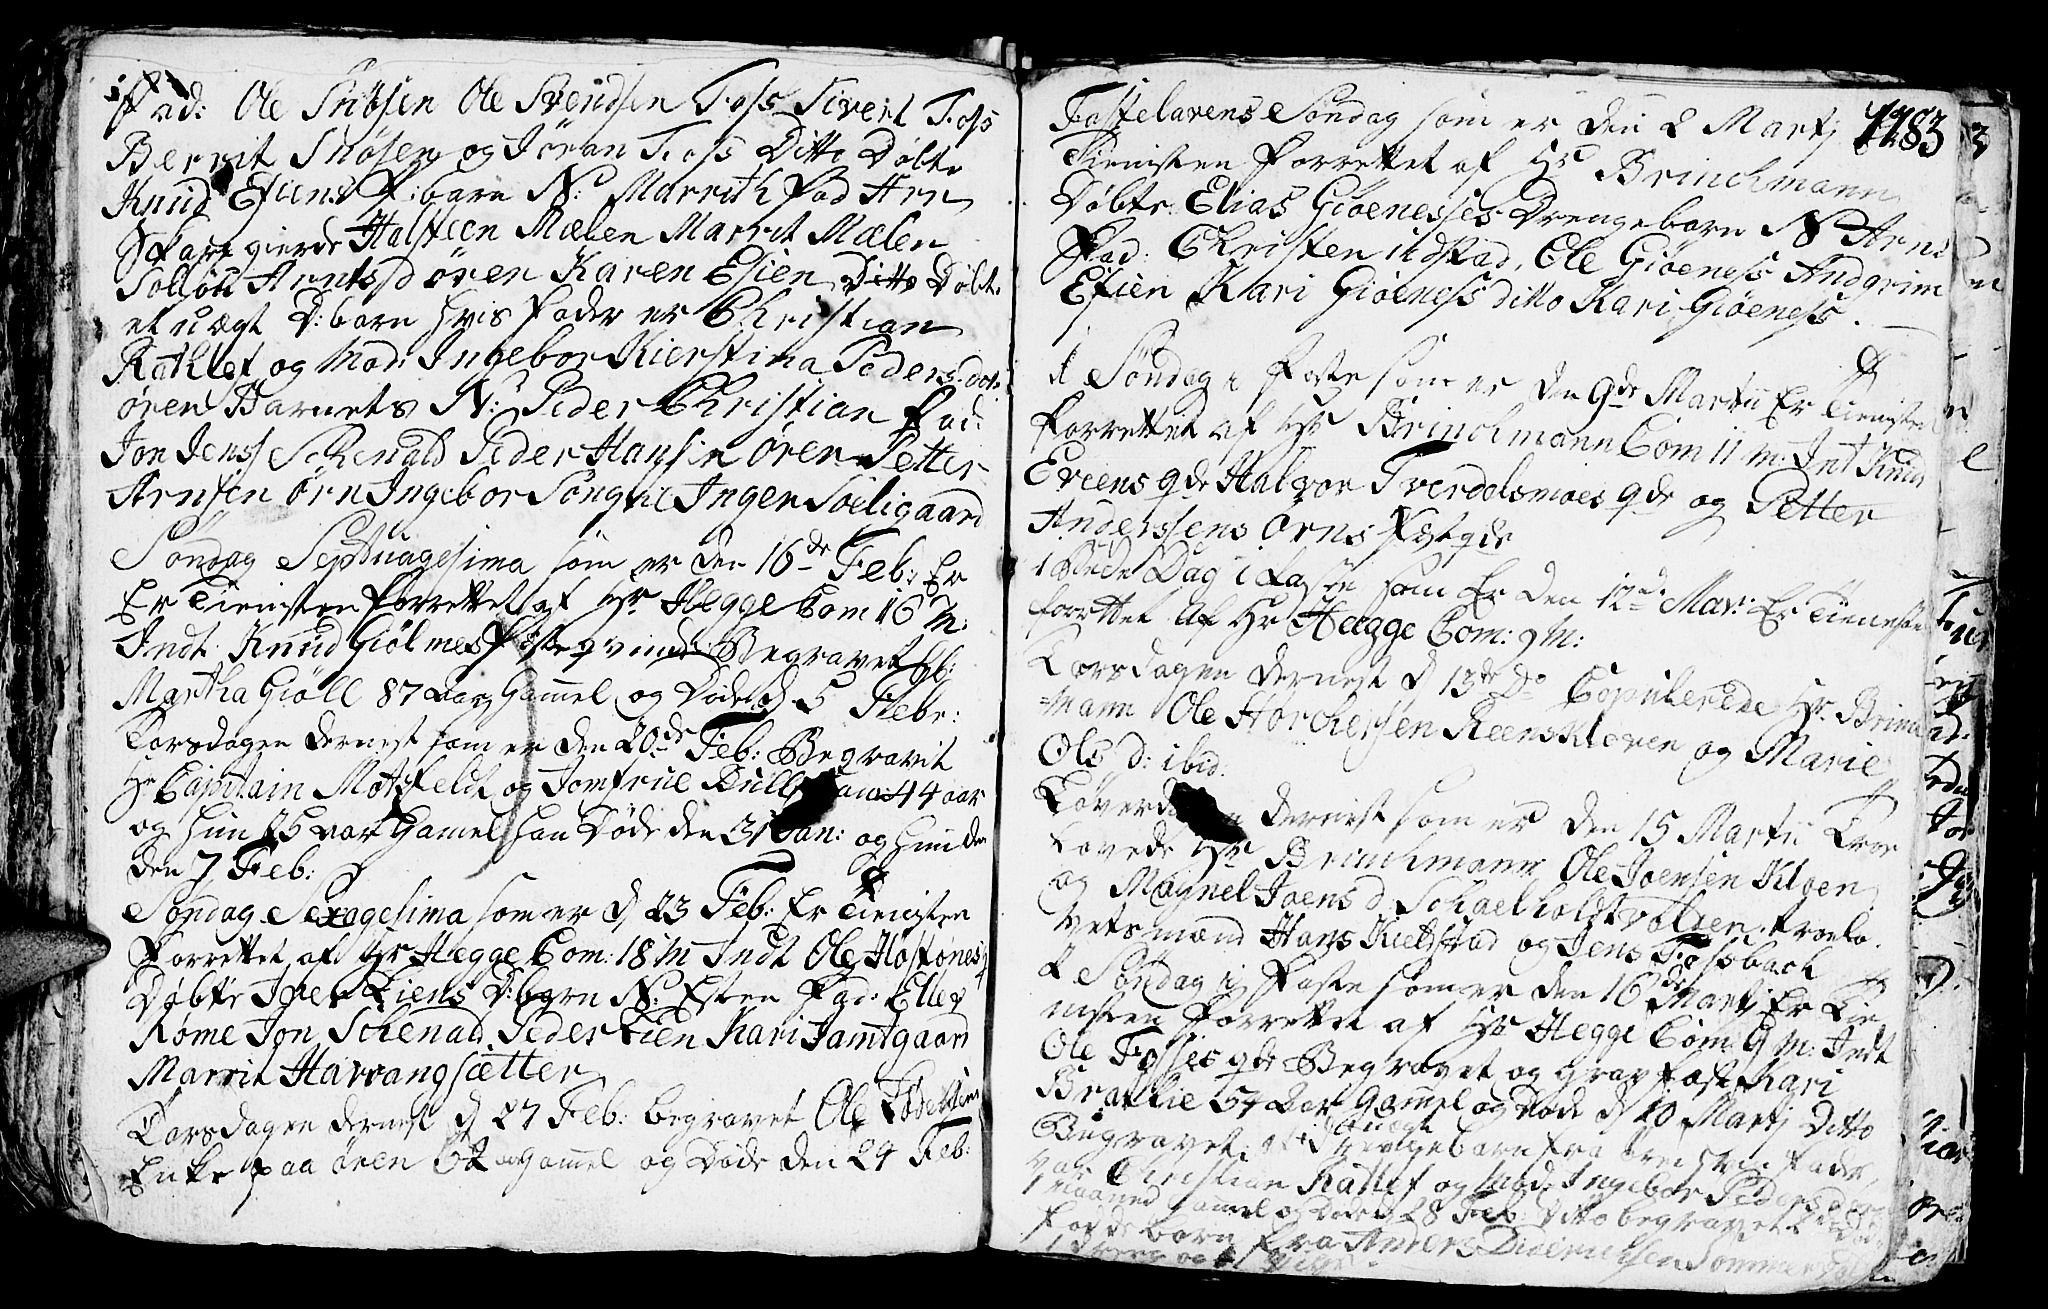 Fad: Ole Snøsen Ole Svendsen Foss Sivert Foss
Berrit Snøsen og Jøran Foss Ditto Døbte
Knud Efiens P: barn N: Marrith Fad Arn
Skaregierde Halsteen Mælen Marrit Mælen
Solløu Arntsd ören Karen Efien, Ditto Døbt
et uægt D: barn hvis Fader er Christian
Rathlef og Mod: Ingebor Kierstina Peders dot:
ören Barnets N: Peder Christian Fad:
Jon Jenss Schenald Peder Hansen ören Petter
Arnsen örn Ingebor Songne Inger Soeligaard
Søndag Septuagesima som er den 16de Feb: Er
Er Tienisten forrettet af Hr Hegge Com 16 M:
Indt Knud Giølmes Feste qvinde Begravet
Martha Giøll 87 aar Gamel og Døde d 5 Febr:
Torsdagen dernest som er den 20de Feb: Begravit
Hr Capitain Motzfeldt og Jomfrue Bull han 44 aar
og hun 25 var Gamel han Døde den 31 Jan: og hun den
den 7 Feb:
Søndag Sexagesima som er d 23 Feb: Er Tienisten
Forrettet af Hr Hegge Com: 18 M Indt Ole Høstønes
Døbte Iver Liens D: barn N: Esten Fad: Ellev
Röme Jon Schenad Peder Lien Kari Jamtgaard
Marrit Harrangsætter
Torsdagen dernest d 27 Feb: begravet Ole
Enke paa ören 62 aar Gamel og Døde den 24 Feb:
Fastelavens Søndag som er den 2 Martj 1783
Tienisten Forrettet af Hr Brinchmann
Døbte Elias Giøenesses Drengebarn N Arnt
Fad: Christen indstad, Ole Giøeness Andgrim
Efien Kari Giøeness ditto Kari Giøeness.
1 Søndag i Faste som er den 9de Martii Er Tienisten
Forrettet af Hr Brinchmann Com 11 M: Int Knud
Eveens qde Halvor Tverdalsmoes qde og Petter
Anderssens örns Fæste qde
1 Bede Dag i Faste som Er den 12de Mar: Er Tieneste
forettet af Hr Hegge Com: 9 M:
Torsdagen dernest d 13de Do Copulerede Hr. Brinch
=mann Ole Horchersen Reenskleven og Marie
Ols D: ibid:
Løverdagen dernest som er den 15 Martii Troe
Lovede Hr Brinchmann Ole Joensen Kloen
og Magnel Joens d Schaelholdt vollsen, troelo
vets mænd Hans Kielstad og Jens Fossbach
2 Søndag i Faste som er den 16de Martj Er Tie
nisten Forrettet af Hr Hegge Com: 9 M: Indt
Ole Fosses qde Begravet og Gravfast Kari
Brathie 54 Aar Gamel og Døde d 10 Martj Ditto
Begravet: et uægte Drengebarn fra ören hvis Fader
var Christian Ratlef og Mod: Ingebor Peders dor
1 Maaned Gamel og Døde d 28 Feb: Ditto begravet 2 død
fødde Børn fra Anders Diderichsen Sommer
1 Dreng og 1 Pige